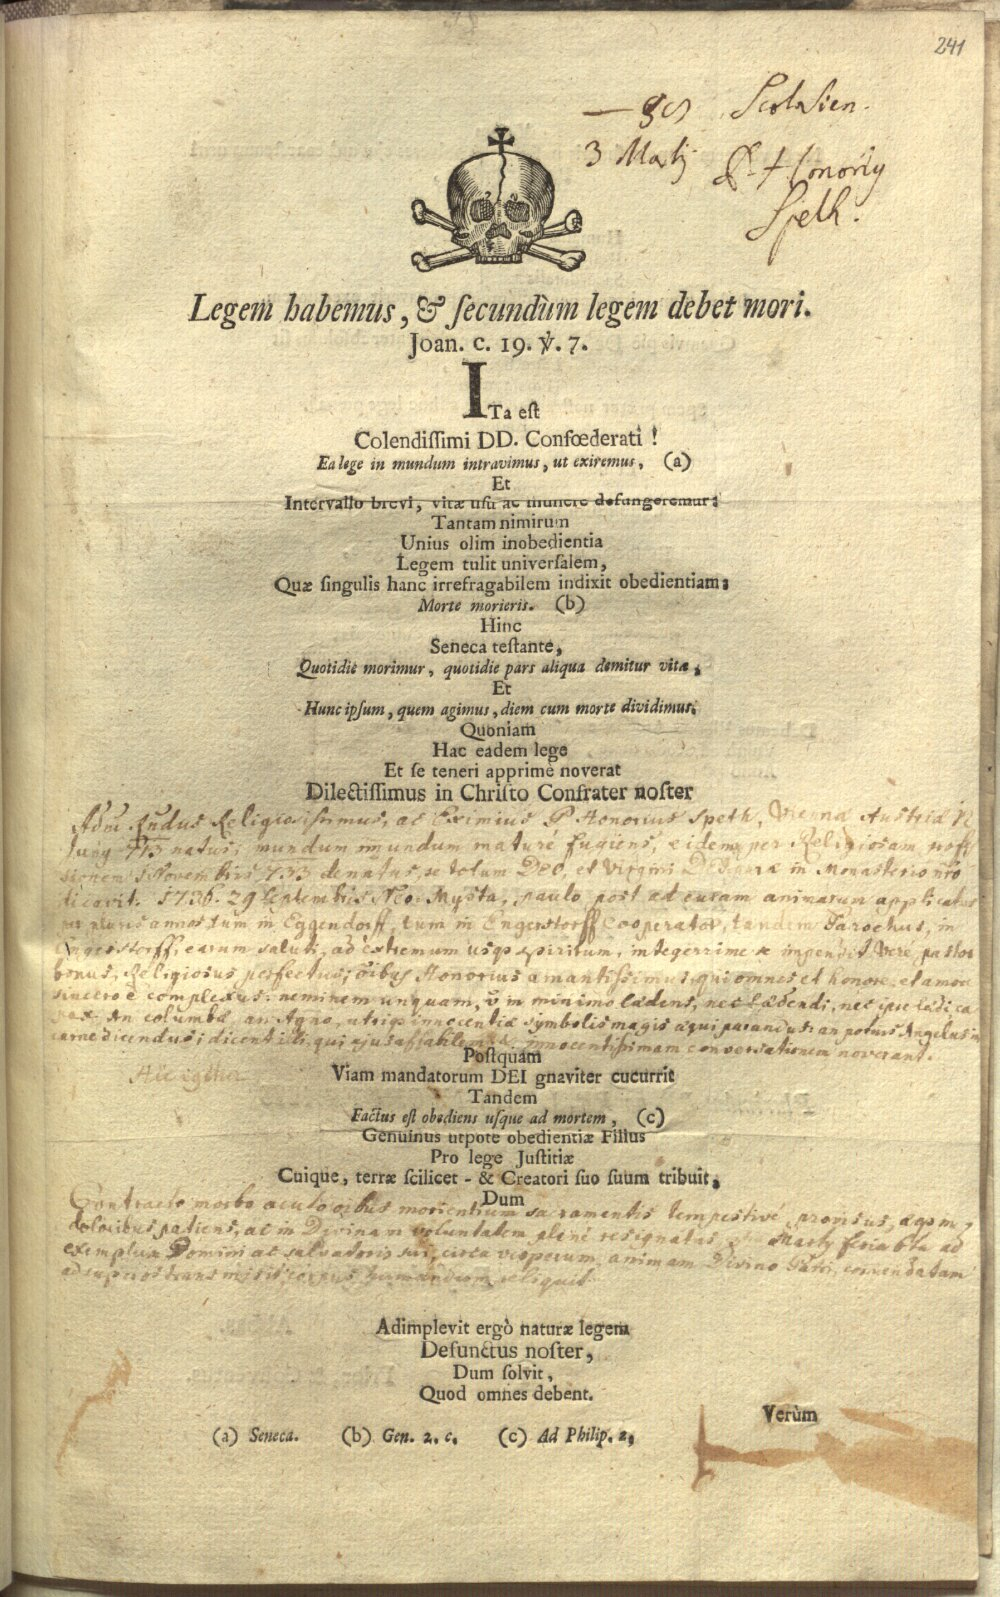 241
Scotensien.
3 Martij
P. Honorij
Speth.
Legem habemus, & ſecundùm legem debet mori.
Joan. c. 19. ℣. 7.
ITa eſt
Colendiſſimi DD. Confœderati !
Ea lege in mundum intravimus, ut exiremus, (a)
Et
Intervallo brevi, vitæ uſu ac munere defungeremur:
Tantam nimirum
Unius olim inobedientia
Legem tulit univerſalem,
Quæ ſingulis hanc irrefragabilem indixit obedientiam;
Morte morieris. (b)
Hinc
Seneca teſtante,
Quotidie morimur, quotidie pars aliqua demitur vitæ,
Et
Hunc ipſum, quem agimus, diem cum morte dividimus.
Quoniam
Hac eadem lege
Et ſe teneri apprimè noverat
Dilectiſſimus in Chriſto Confrater noſter
Adm Rndus Religiosissimus, ac Eximius P Honorius Speth, Vienna Austriæ
Junij 1713 natus; mundum immundum maturé fugiens, eidem per Religiosam proff
sionem Novembris 1733 denatus, se totum DEO, et Virgini DEIparæ in Monasterio nro
dicavit. 1736. 29 Septembris Neo-Mysta, paulo post ad curam animarum applicatus
per plures annos tum in Eggendorff, tum in Engerstorff Cooperator, tandem Parochus, in
Engerstorff, earum saluti, ad extremum usq spiritum, integerrime se impendit. Veré pastor
bonus, Religiosus perfectus; oibus Honorius amantissimus, qui omnes et honore, et amore
sincero é complexus: neminem unquam, in minimo lædens, nec Lædendi, nec ipse lædi ca
pax. An columbæ, an Agno, utriq innocentiæ symbolis magis æquiparandus; an potius Angelus in
carne dicendus; dicent illi, qui ejus affabilem innocentissimam conversationem noverant.
Hic igitur
Poſtquam
Viam mandatorum DEI gnaviter cucurrit
Tandem
Factus eſt obediens uſque ad mortem, (c)
Genuinus utpote obedientiæ Filius
Pro lege Juſtitiæ
Cuique, terræ ſcilicet - & Creatori ſuo ſuum tribuit,
Dum
Contracto morbo acuto oibus morientium sacramentis tempestivé provisus, agom,
doloribus patiens, ac in Divinam voluntatem plené resignatus, Martij feria 6ta ad
exemplum Domini ac salvatoris sui, circa vesperum, animam Divino Patri commendatam
ad superos transmisit, corpus humandum reliquit.
Adimplevit ergò naturæ legem
Defunctus noſter,
Dum ſolvit,
Quod omnes debent.
Verùm
(a) Seneca. (b) Gen. 2. c. (c) Ad Philip. 2.